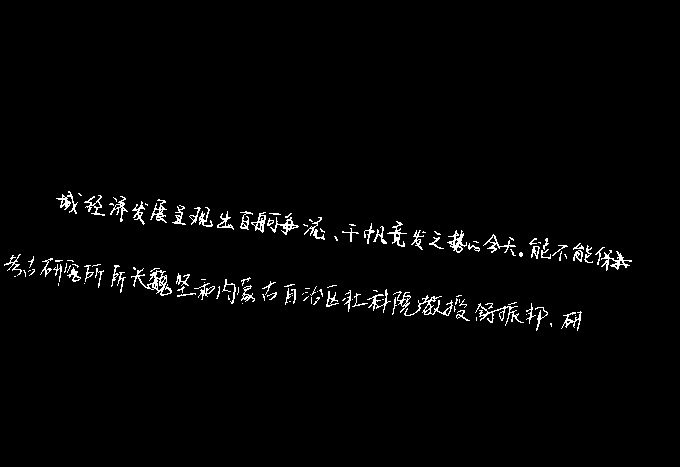 域经济发展呈现出百舸争流、千帆竞发之势的今天。能不能保持
考古研究所所长魏坚和内蒙古自治区社科院教授舒振邦、研